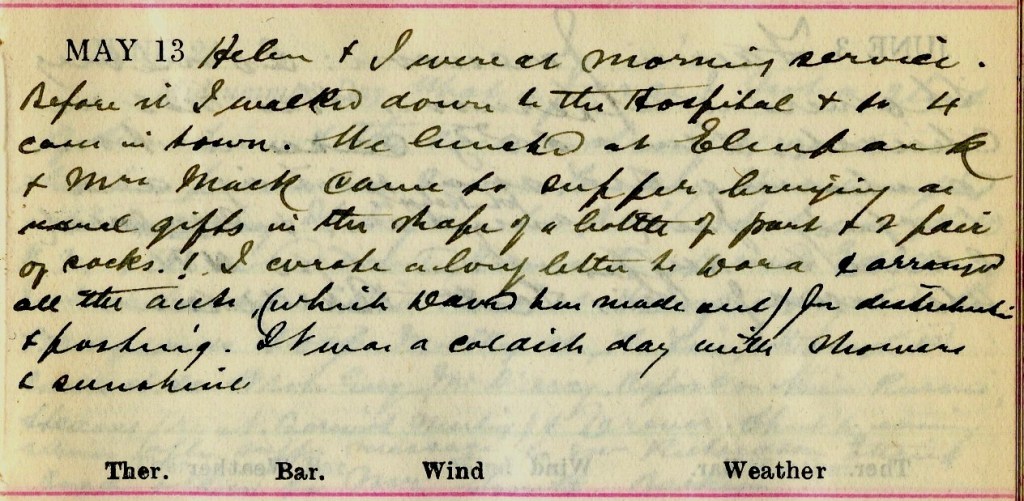 MAY 13 Helen & I were at morning service.
Before it I walked down to the Hospital & to 4
cases in town. We lunched at Elmbank
& Mrs Mack came to supper bringing as
usual gifts in the shape of a bottle of port & 2 pair
of socks.! I wrote a long letter to Dora & arranged
all the accts, (which David has made out) for distribution
& posting. It was a coldish day with showers
& sunshine
Ther. Bar. Wind Weather